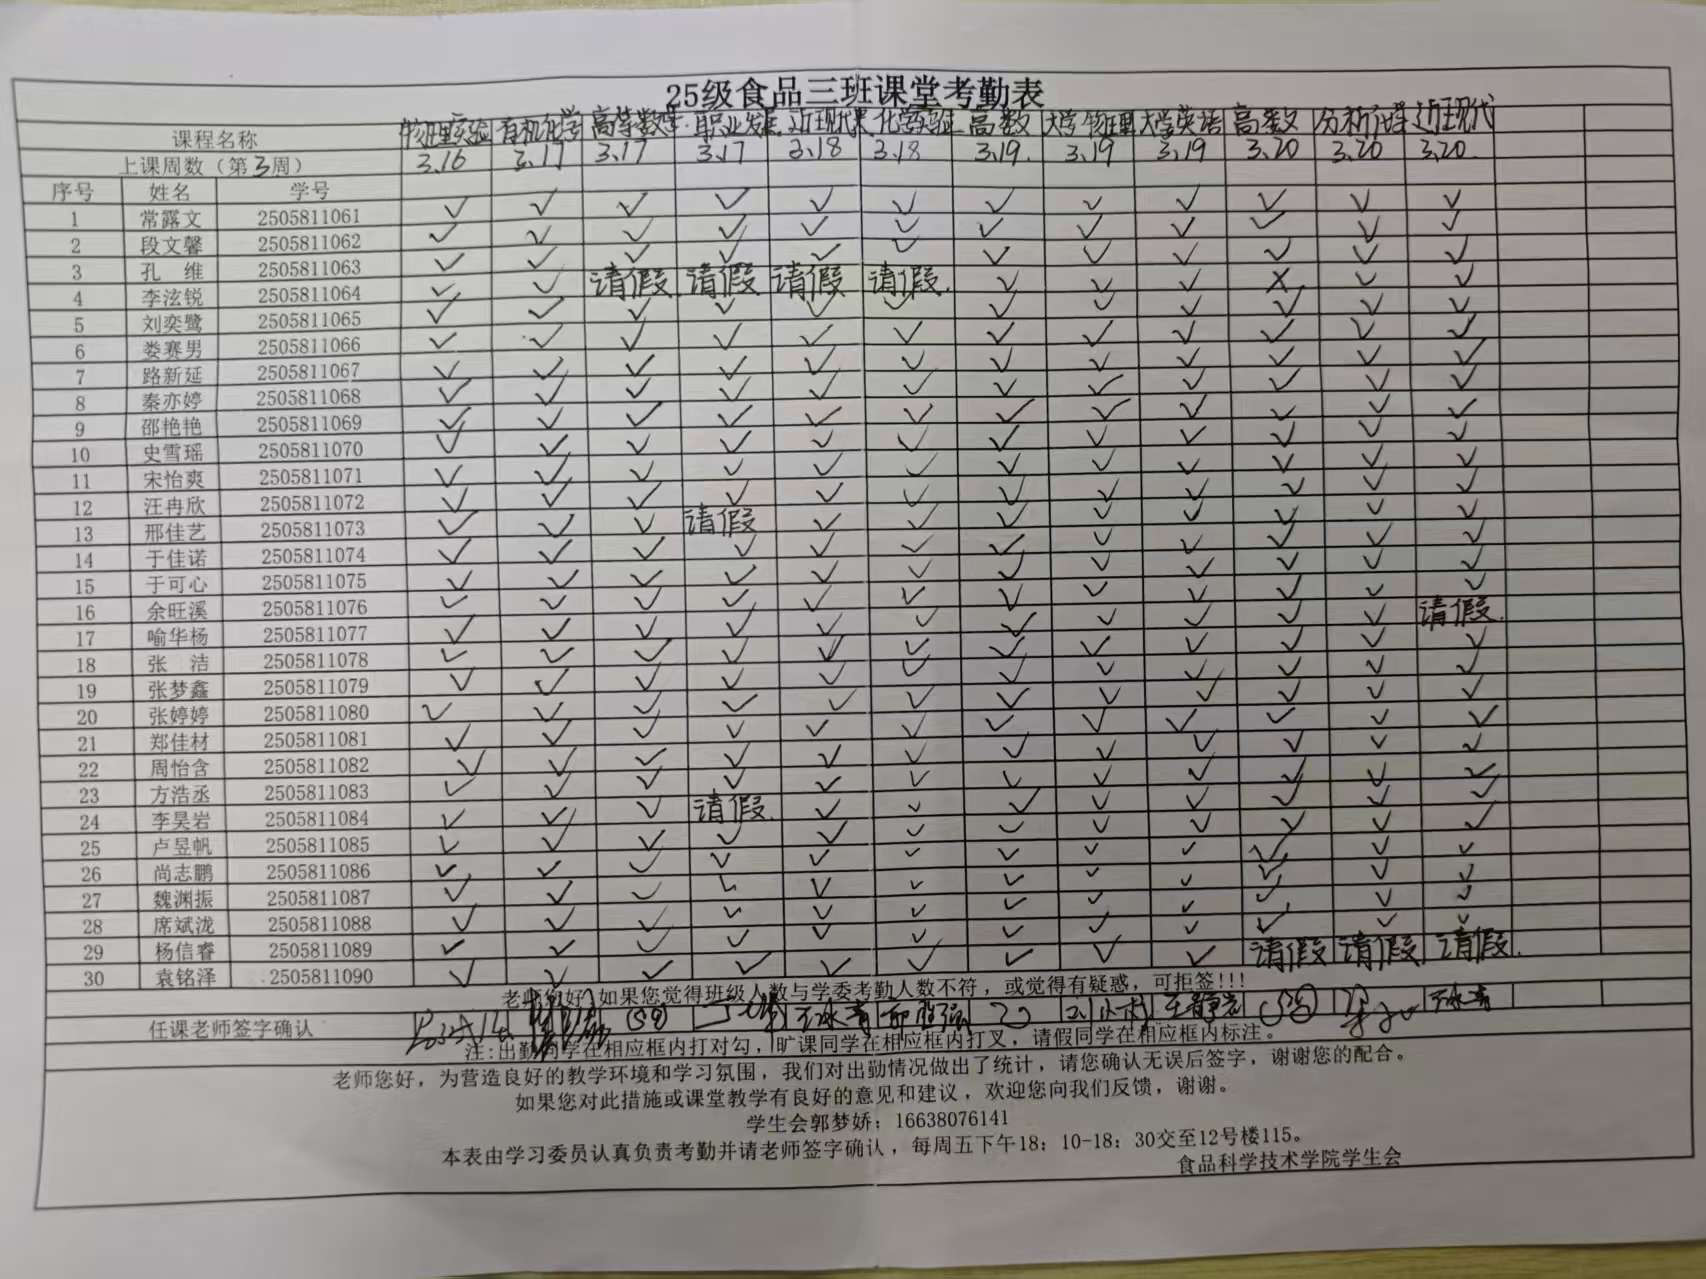 25级食品三班课堂考勤表
课程名称 物理实验 有机化学 高等数学 职业发展 近现代史 化学实验 高数 大学物理 大学英语 高数 分析化学 近现代
上课周数（第3周） 3.16 3.17 3.17 3.17 3.18 3.18 3.19. 3.19 3.19 3.20 3.20 3.20.
序号 姓名 学号
1 常露文 2505811061 ✓ ✓ ✓ ✓ ✓ ✓ ✓ ✓ ✓ ✓ ✓ ✓
2 段文馨 2505811062 ✓ ✓ ✓ ✓ ✓ ✓ ✓ ✓ ✓ ✓ ✓ ✓
3 孔 维 2505811063 ✓ ✓ ✓ ✓ ✓ ✓ ✓ ✓ ✓ ✓ ✓ ✓
4 李泫锐 2505811064 ✓ ✓ 请假. 请假 请假 请假. ✓ ✓ ✓ X ✓ ✓
5 刘奕鹭 2505811065 ✓ ✓ ✓ ✓ ✓ ✓ ✓ ✓ ✓ ✓ ✓ ✓
6 娄赛男 2505811066 ✓ ✓ ✓ ✓ ✓ ✓ ✓ ✓ ✓ ✓ ✓ ✓
7 路新延 2505811067 ✓ ✓ ✓ ✓ ✓ ✓ ✓ ✓ ✓ ✓ ✓ ✓
8 秦亦婷 2505811068 ✓ ✓ ✓ ✓ ✓ ✓ ✓ ✓ ✓ ✓ ✓ ✓
9 邵艳艳 2505811069 ✓ ✓ ✓ ✓ ✓ ✓ ✓ ✓ ✓ ✓ ✓ ✓
10 史雪瑶 2505811070 ✓ ✓ ✓ ✓ ✓ ✓ ✓ ✓ ✓ ✓ ✓ ✓
11 宋怡爽 2505811071 ✓ ✓ ✓ ✓ ✓ ✓ ✓ ✓ ✓ ✓ ✓ ✓
12 汪冉欣 2505811072 ✓ ✓ ✓ ✓ ✓ ✓ ✓ ✓ ✓ ✓ ✓ ✓
13 邢佳艺 2505811073 ✓ ✓ ✓ 请假 ✓ ✓ ✓ ✓ ✓ ✓ ✓ ✓
14 于佳诺 2505811074 ✓ ✓ ✓ ✓ ✓ ✓ ✓ ✓ ✓ ✓ ✓ ✓
15 于可心 2505811075 ✓ ✓ ✓ ✓ ✓ ✓ ✓ ✓ ✓ ✓ ✓ ✓
16 余旺溪 2505811076 ✓ ✓ ✓ ✓ ✓ ✓ ✓ ✓ ✓ ✓ ✓ ✓
17 喻华杨 2505811077 ✓ ✓ ✓ ✓ ✓ ✓ ✓ ✓ ✓ ✓ ✓ 请假.
18 张 洁 2505811078 ✓ ✓ ✓ ✓ ✓ ✓ ✓ ✓ ✓ ✓ ✓ ✓
19 张梦鑫 2505811079 ✓ ✓ ✓ ✓ ✓ ✓ ✓ ✓ ✓ ✓ ✓ ✓
20 张婷婷 2505811080 ✓ ✓ ✓ ✓ ✓ ✓ ✓ ✓ ✓ ✓ ✓ ✓
21 郑佳材 2505811081 ✓ ✓ ✓ ✓ ✓ ✓ ✓ ✓ ✓ ✓ ✓ ✓
22 周怡含 2505811082 ✓ ✓ ✓ ✓ ✓ ✓ ✓ ✓ ✓ ✓ ✓ ✓
23 方浩丞 2505811083 ✓ ✓ ✓ ✓ ✓ ✓ ✓ ✓ ✓ ✓ ✓ ✓
24 李昊岩 2505811084 ✓ ✓ ✓ 请假. ✓ ✓ ✓ ✓ ✓ ✓ ✓ ✓
25 卢昱帆 2505811085 ✓ ✓ ✓ ✓ ✓ ✓ ✓ ✓ ✓ ✓ ✓ ✓
26 尚志鹏 2505811086 ✓ ✓ ✓ ✓ ✓ ✓ ✓ ✓ ✓ ✓ ✓ ✓
27 魏渊振 2505811087 ✓ ✓ ✓ ✓ ✓ ✓ ✓ ✓ ✓ ✓ ✓ ✓
28 席斌泷 2505811088 ✓ ✓ ✓ ✓ ✓ ✓ ✓ ✓ ✓ ✓ ✓ ✓
29 杨信睿 2505811089 ✓ ✓ ✓ ✓ ✓ ✓ ✓ ✓ ✓ ✓ ✓ ✓
30 袁铭泽 2505811090 ✓ ✓ ✓ ✓ ✓ ✓ ✓ ✓ ✓ 请假 请假 请假.
老师您好，如果您觉得班级人数与学委考勤人数不符，或觉得有疑惑，可拒签!!!
任课老师签字确认
注:出勤同学在相应框内打对勾，旷课同学在相应框内打叉，请假同学在相应框内标注。
老师您好，为营造良好的教学环境和学习氛围，我们对出勤情况做出了统计，请您确认无误后签字，谢谢您的配合。
如果您对此措施或课堂教学有良好的意见和建议，欢迎您向我们反馈，谢谢。
学生会郭梦娇：16638076141
本表由学习委员认真负责考勤并请老师签字确认，每周五下午18：10-18：30交至12号楼115。
食品科学技术学院学生会